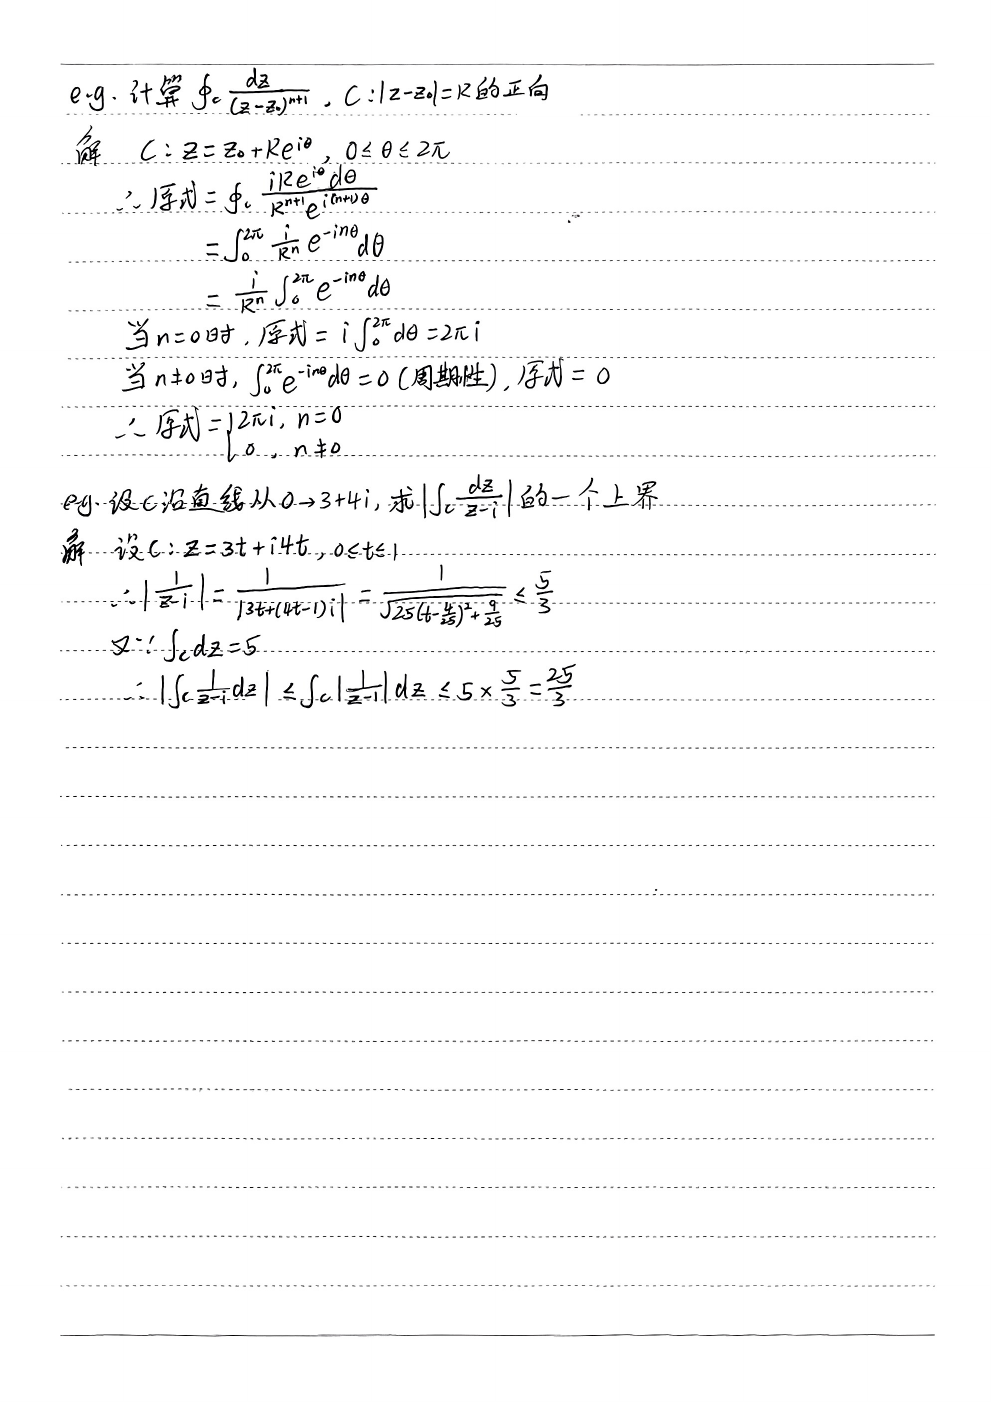 e.g. 计算 ∮_C dz/(z-z₀)^{n+1}, C:|z-z₀|=R的正向
解 C: z=z₀+Re^{iθ}, 0≤θ≤2π
∴原式=∮_C iRe^{iθ}dθ/(R^{n+1}e^{i(n+1)θ})
=∫_0^{2π} i/R^n e^{-inθ}dθ
= i/R^n ∫_0^{2π} e^{-inθ}dθ
当n=0时, 原式=i∫_0^{2π}dθ=2πi
当n≠0时, ∫_0^{2π}e^{-inθ}dθ=0(周期性), 原式=0
∴原式={2πi, n=0
0, n≠0
e.g. 设C沿直线从0→3+4i, 求|∫_C dz/(z-i)|的一个上界
解 设C: z=3t+i4t, 0≤t≤1
∴|1/(z-i)|=1/|3t+(4t-1)i|=1/√(25(t-4/25)²+9/25)≤5/3
又∵∫_C dz=5
∴|∫_C 1/(z-i) dz|≤∫_C|1/(z-i)|dz≤5×5/3=25/3